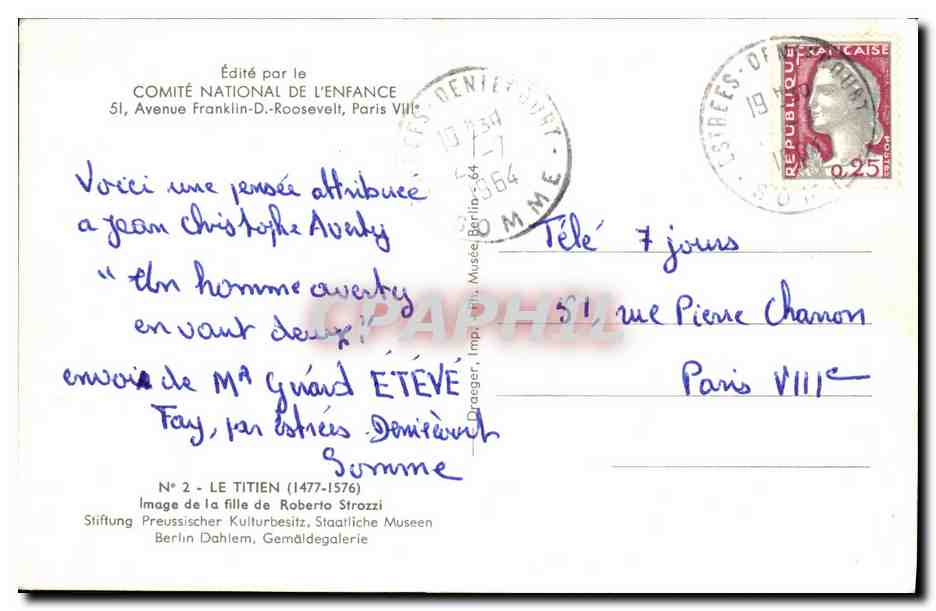 Édité par le
COMITÉ NATIONAL DE L'ENFANCE
51, Avenue Franklin-D.-Roosevelt, Paris VIIIe
Voici une pensée attribuée
a Jean Christophe Averty
"Un homme averty
en vaut deux!"
envoi de Mr Gérard ÉTÉVÉ
Fay, par Estrées Deniécourt
Somme
N° 2 - LE TITIEN (1477-1576)
Image de la fille de Roberto Strozzi
Stiftung Preussischer Kulturbesitz, Staatliche Museen
Berlin Dahlem, Gemäldegalerie
Draeger, Imp. - Ph. Musée Berlin - 64
DENIECOURT
1964
SOMME
ESTREES-DENIECOURT
19
SOMME
REPUBLIQUE FRANÇAISE
POSTES
0,25
Télé 7 jours
51, rue Pierre Charron
Paris VIIIe
CPAPHIL